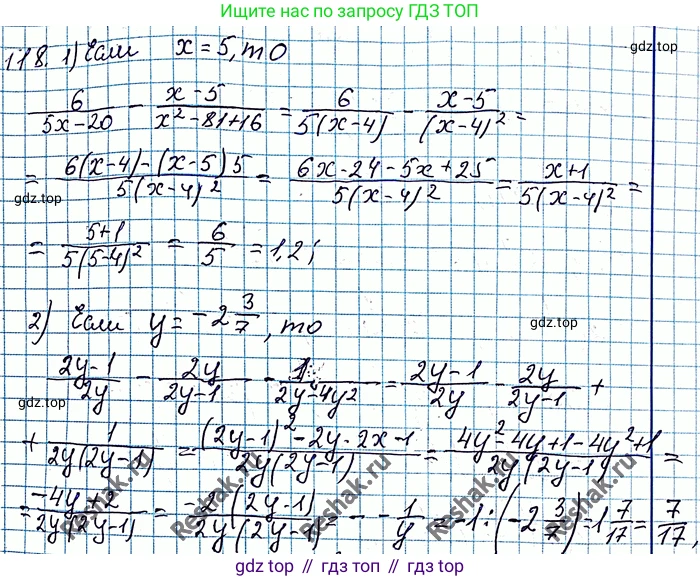 Ищите нас по запросу ГДЗ ТОП
118. 1) Если x = 5, то
gdz.top
6/(5x-20) - (x-5)/(x²-81+16) = 6/(5(x-4)) - (x-5)/(x-4)² =
= (6(x-4)-(x-5)5)/(5(x-4)²) = (6x-24-5x+25)/(5(x-4)²) = (x+1)/(5(x-4)²) =
gdz.top
gdz.top
= (5+1)/(5(5-4)²) = 6/5 = 1,2;
2) Если y = -2 3/7, то
gdz.top
(2y-1)/2y - 2y/(2y-1) - 1/(2y-4y²) = (2y-1)/2y - 2y/(2y-1) +
gdz.top
+ 1/(2y(2y-1)) = ((2y-1)²-2y·2x-1)/(2y(2y-1)) = (4y²-4y+1-4y²+1)/(2y(2y-1)) =
= (-4y+2)/(2y(2y-1)) = (-2(2y-1))/(2y(2y-1)) = -1/y = -1:(-2 3/7) = 1 7/17 = 7/17,
Reshak.ru
Reshak.ru
Reshak.ru
Reshak.ru
gdz.top
Присоединяйтесь к нам на www.gdz.top